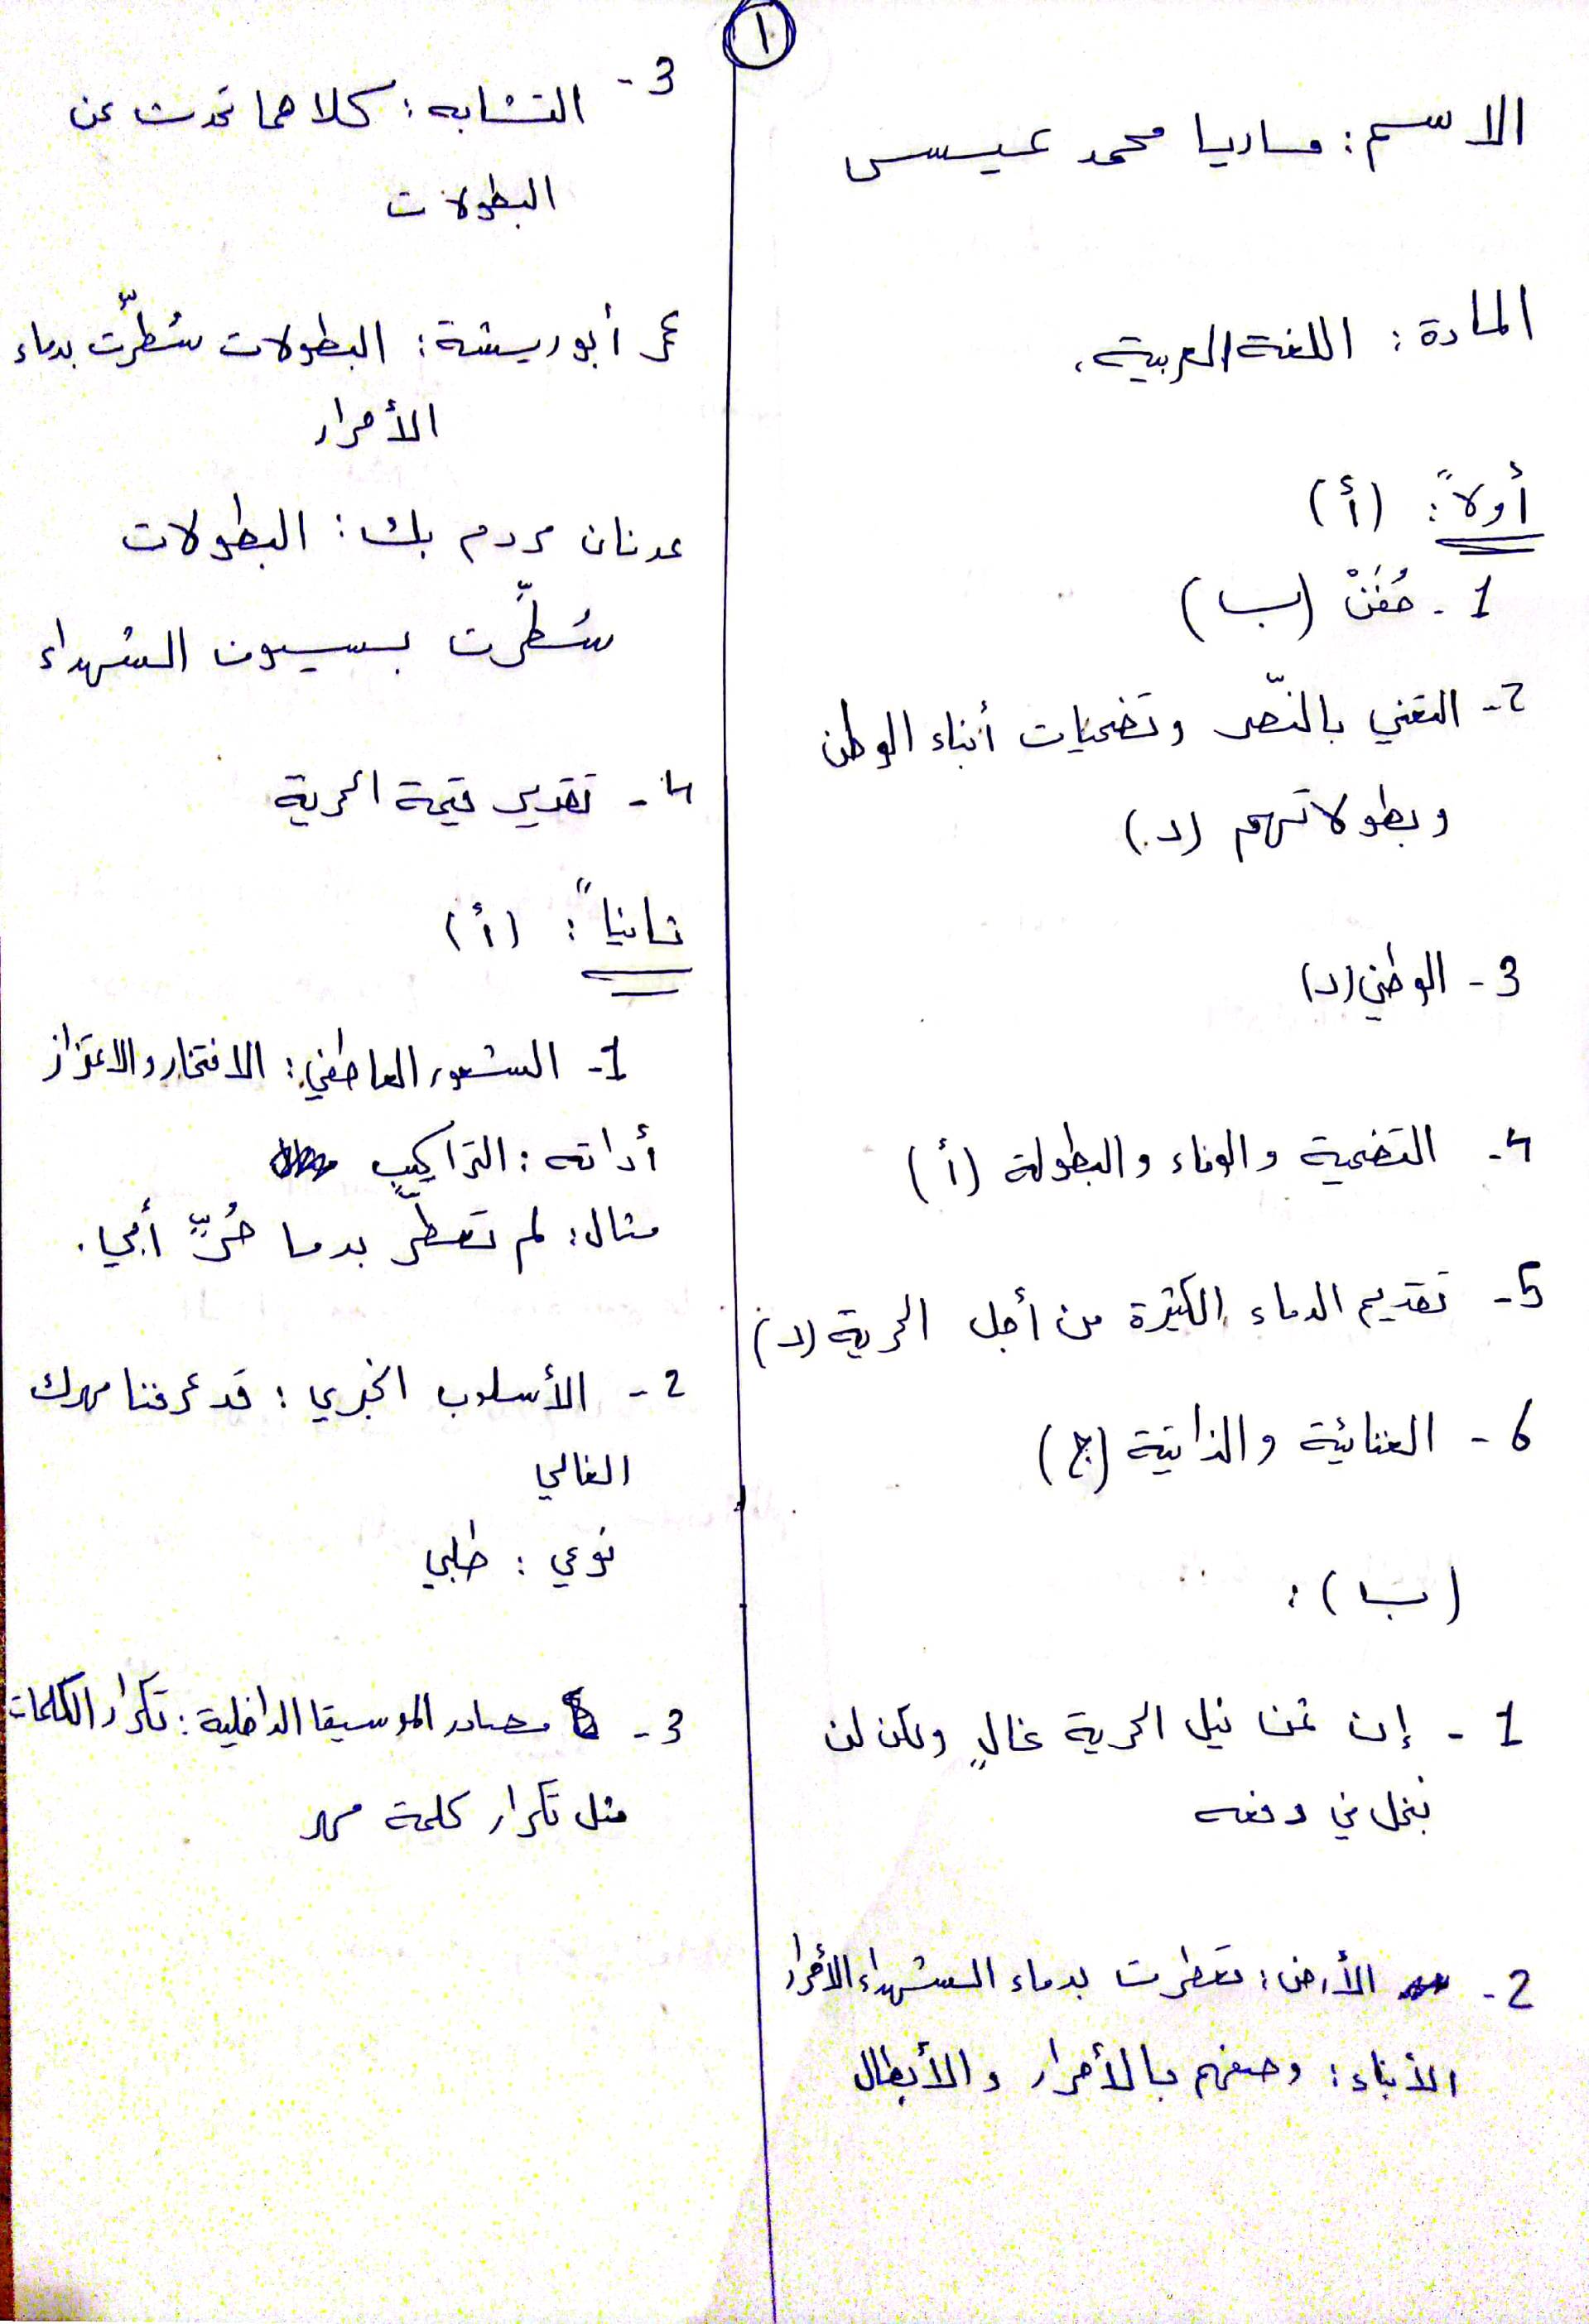 ١
الاسم: ماريا محمد عيسى
المادة: اللغة العربية.
أولاً: (أ)
1 - حُفَنْ (ب)
2 - التغني بالنّصر وتضحيات أبناء الوطن
وبطولاتهم (د)
3 - الوطني (د)
4 - التضحية والوفاء والبطولة (أ)
5 - تقديم الدماء الكثيرة من أجل الحرية (د)
6 - الغنائية والذاتية (ج)
(ب):
1 - إن ثمن نيل الحرية غالٍ ولكن لن
نبخل في دفعه
2 - الأرض: تعطرت بدماء الشهداء الأحرار
الأبناء: وصفهم بالأحرار والأبطال
3 - التشابه: كلاهما تحدث عن
البطولات
عمر أبو ريشة: البطولات سُطِّرت بدماء
الأحرار
عدنان مردم بك: البطولات
سُطِّرت بسيوف الشهداء
4 - تقدير قيمة الحرية
ثانياً: (أ)
1 - الشعور العاطفي: الافتخار والاعتزاز
أداته: التراكيب
مثال: لم تعطّر بدما حُرٍّ أبي.
2 - الأسلوب الخبري: قد عرفنا مهرك
الغالي
نوعي: طلبي
3 - مصادر الموسيقا الداخلية: تكرار الكلمات
مثل تكرار كلمة مهر